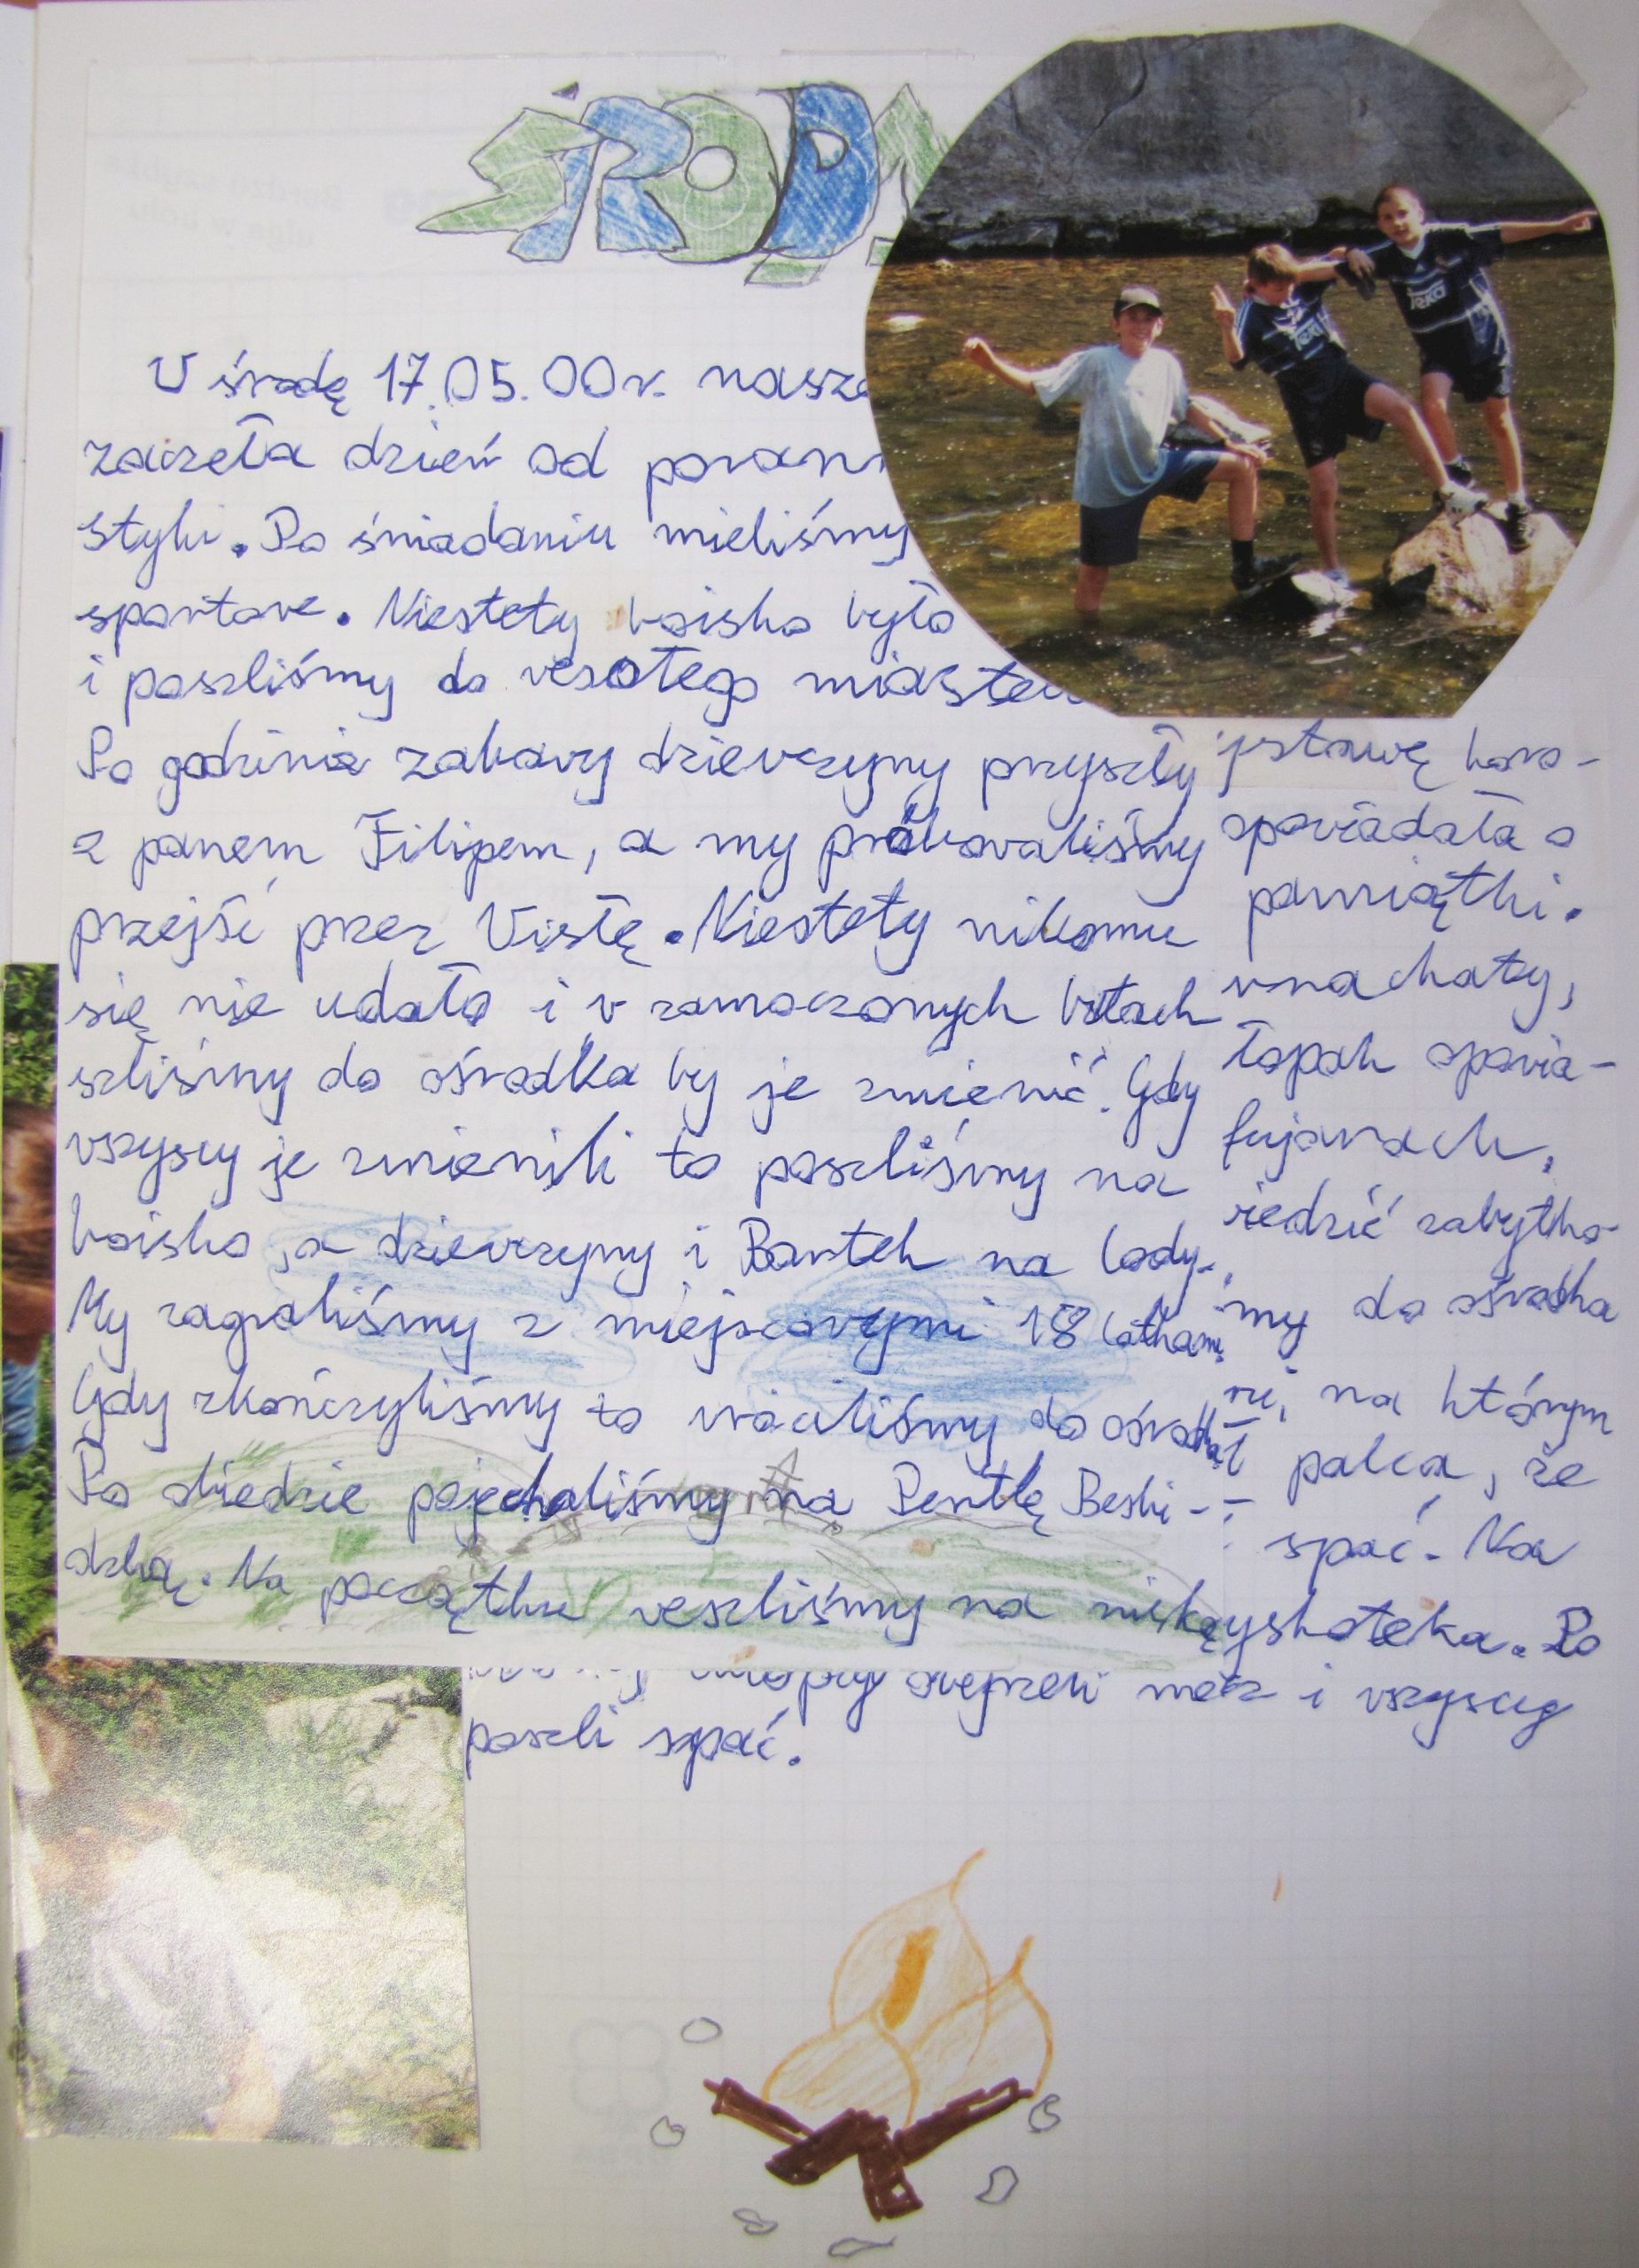 ŚRODA
W środę 17.05.00r. nasza
zaczeła dzień od poran
styki. Po śniadaniu mieliśmy
sportowe. Niestety boisko było
i poszliśmy do wesołego miastecz
Po godzinie zabawy dziewczyny przyszły
z panem Filipem, a my próbowaliśmy
przejść przez Wisłę. Niestety nikomu
się nie udało i w zamoczonych butach
szliśmy do ośrodka by je zmienić. Gdy
wszyscy je zmienili to poszliśmy na
boisko, a dziewczyny i Bartek na lody.
My zagraliśmy z miejscowymi 18 latkami
Gdy zkończyliśmy to wróciliśmy do ośrodka
Po obiedzie pojechaliśmy na Pentlę Beski-
dzką. Na początku weszliśmy na
ystawę koro-
opowiadała o
pamiątki.
wnachaty,
łopak opowia-
fujarach,
iedzić zabytko-
my do ośrodka
ru, na którym
palca, że
spać. Na
yskoteka. Po
mecz i wszyscy
poszli spać.